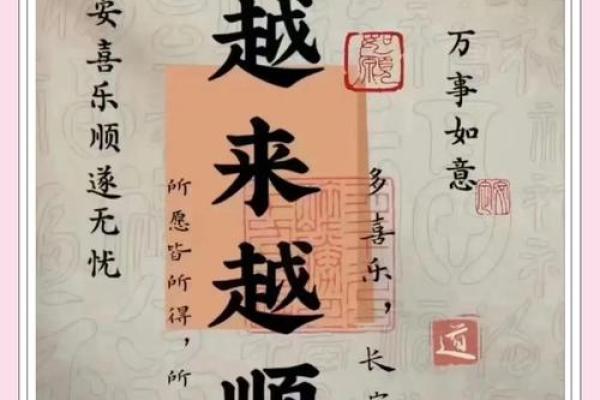 万事如意
道
多喜乐，长
如願
越来越顺
所愿皆所得，所
安喜乐顺遂无忧